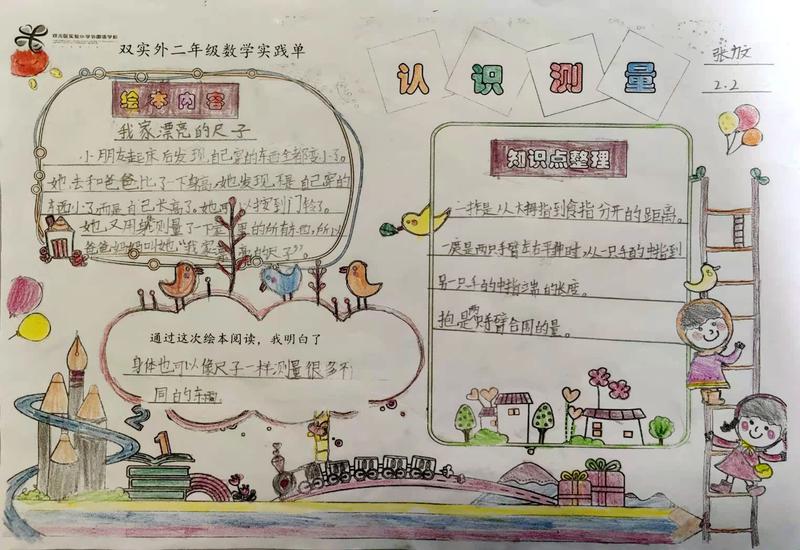 双流区实验小学外国语学校
双实外二年级数学实践单
认识测量
张力文
2.2
绘本内容
我家漂亮的尺子
小朋友起床后发现，自己穿的东西全都变小了。
她去和爸爸比了一下身高，她发现，不是自己穿的
东西小了而是自己长高了。她可以按到门铃了。
她又用身测量了下家里的所有东西，所以
爸爸妈妈叫她，“我家漂亮的尺子”。
通过这次绘本阅读，我明白了
身体也可以像尺子一样测量很多不
同的东西
知识点整理
一拃是从大拇指到食指分开的距离。
一度是两只手臂左右平伸时，从一只手的中指到
另一只手的中指之端的长度。
抱是两只手臂合围的量。